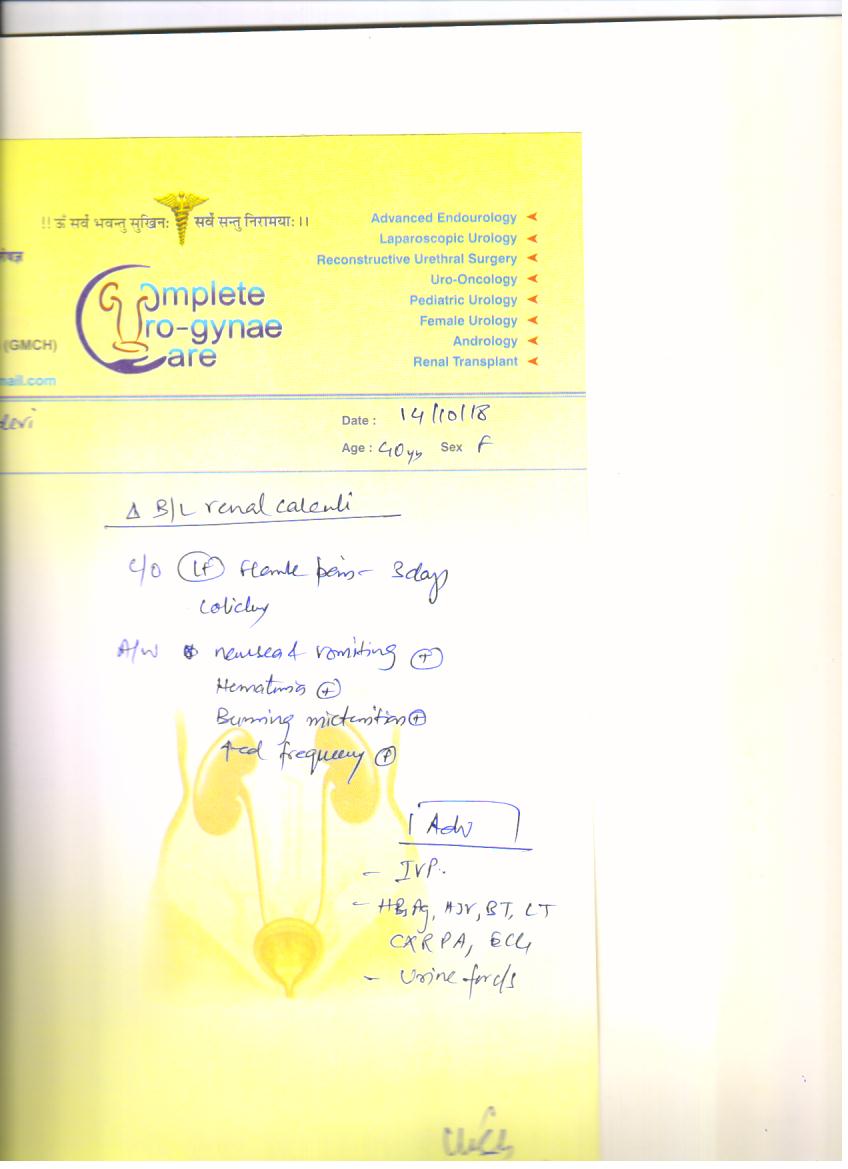 !! ॐ सर्वे भवन्तु सुखिनः सर्वे सन्तु निरामयाः ।।
Advanced Endourology
Laparoscopic Urology
Reconstructive Urethral Surgery
Uro-Oncology
Pediatric Urology
Female Urology
Andrology
Renal Transplant
Complete
Uro-gynae
Care
(GMCH)
mail.com
devi
Date : 14/10/18
Age : 40 yrs Sex F
Δ B/L renal calculi
C/O Lt Flank pain - 3 days
colicky
A/W nausea & vomiting (+)
Hematuria (+)
Burning micturition (+)
↑ed frequency (+)
Adv
- IVP.
- HBsAg, HIV, BT, CT
CXR PA, ECG
- Urine for c/s